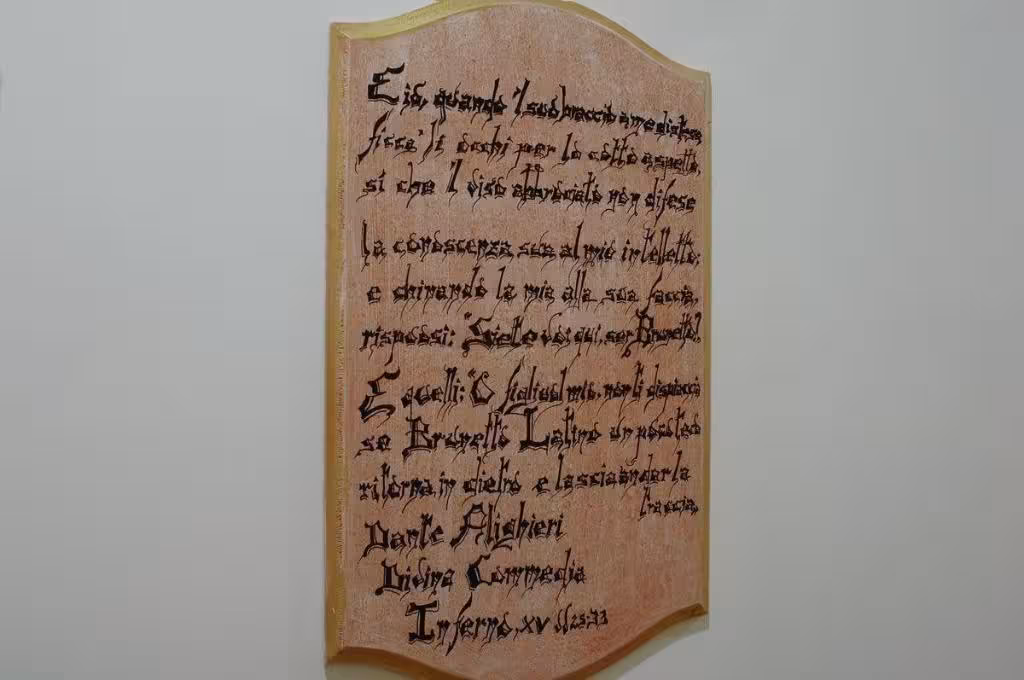 E io, quando 'l suo braccio a me distese
ficcò li occhi per lo cotto aspetto,
sì che 'l viso abbruciato non difese
la conoscenza sua al mio intelletto;
e chinando la mia alla sua faccia,
risposi: "Siete voi qui, ser Brunetto?
E quelli: "O figliuol mio, non ti dispiaccia
se Brunetto Latino un poco teco
ritorna in dietro e lascia andar la
traccia,
Dante Alighieri
Divina Commedia
Inferno, XV